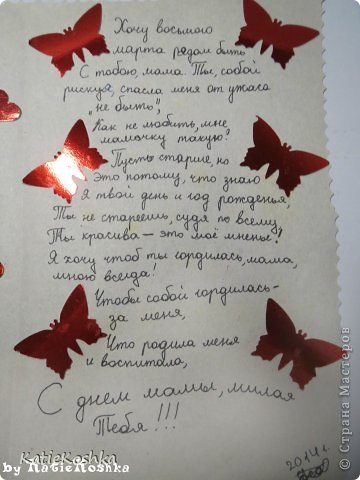 Хочу восьмого
марта рядом быть
С тобою, мама. Ты, собой
рискуя, спасла меня от ужаса
„не быть”,
Как не любить, мне,
мамочку такую?
Пусть старше, но
это потому, что знаю
Я твой день и год рожденья,
Ты не стареешь, судя по всему,
Ты красива — это моё мненье!
Я хочу чтоб ты гордилась, мама,
мною всегда!
Чтобы собой гордилась -
за меня,
Что родила меня
и воспитала,
С днем мамы, милая
Тебя!!!
2014 г.
KatieKoshka
by KatieKoshka
© Страна Мастеров